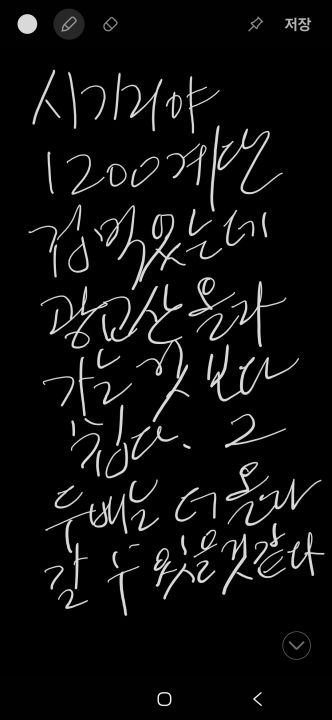 저장
시기리야
1200계단
겁먹었는데
광교산 올라
가는 것 보다
쉽다. 2
두배는 더 올라
갈 수 있을것같다